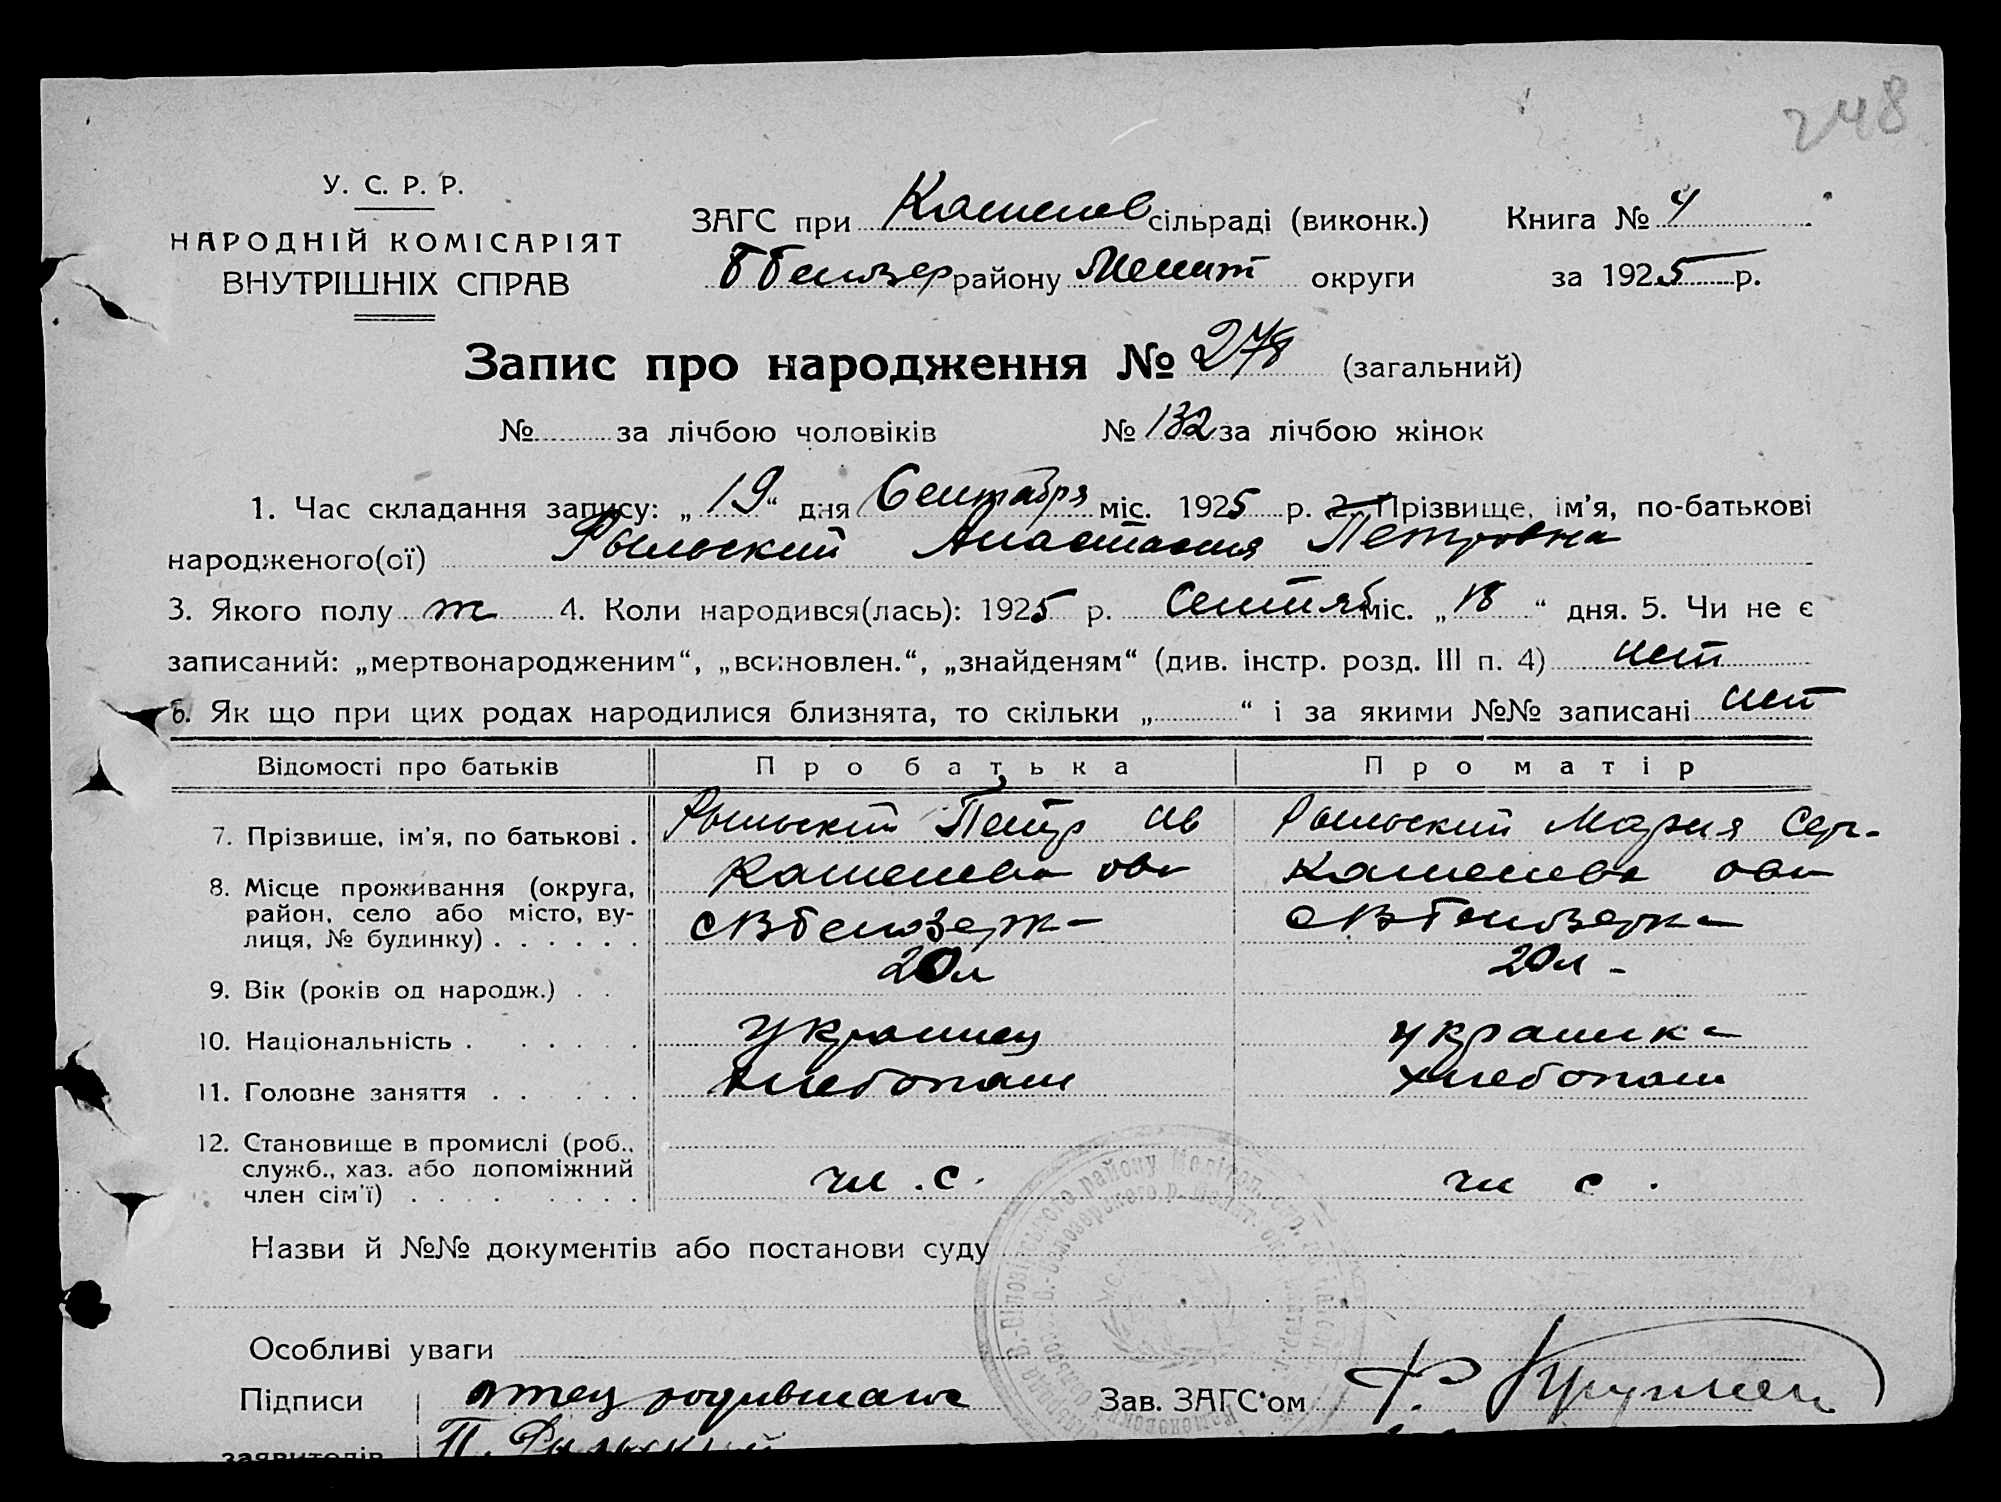 248
У. С. Р. Р.
НАРОДНІЙ КОМІСАРІЯТ
ВНУТРІШНІХ СПРАВ
ЗАГС при Каменов сільраді (виконк.)
Книга № 4
району Мелит округи
за 1925 р.
Запис про народження № 278 (загальний)
№ за лічбою чоловіків № 132 за лічбою жінок
1. Час складання запису: „19“ дня Сентября міс. 1925 р. 2. Прізвище, ім'я, по-батькові
народженого(ої) Рыльский Анастасия Петровна
3. Якого полу 4. Коли народився(лась): 1925 р. Сентяб міс. „18“ дня. 5. Чи не є
записаний: „мертвонародженим“, „всиновлен.“, „знайденям“ (див. інстр. розд. III п. 4) нет
6. Як що при цих родах народилися близнята, то скільки „ “ і за якими №№ записані нет
Відомості про батьків Про батька Про матір
7. Прізвище, ім'я, по батькові . Рыльский Петр Ив Рыльский Мария Сер-
8. Місце проживання (округа, район, село або місто, вулиця, № будинку)
9. Вік (років од народж.) . . 20 л 20 л -
10. Національність . . . . . . украинец украинка
11. Головне заняття . . . . . хлебопаш хлебопаш
12. Становище в промислі (роб., служб., хаз. або допоміжний член сім'ї) . . . . . . . чл. с. чл с.
Назви й №№ документів або постанови суду
Особливі уваги
Підписи отец родившаяс Зав. ЗАГС'ом
заявителів П. Рыльский